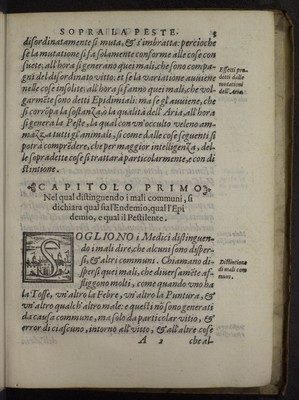 SOPRA LA PESTE. 3
disordinatamente si muta, & s'imbratta: percioche
se la mutatione si fa solamente conforme alle cose con
suete, all'hora si generano quei mali, che sono compa-
gni del disordinato vitto: et se la variatione auuiene
nelle cose insolite, all'hora si fanno quei mali, che vol-
garmẽte sono detti Epidimiali: ma se gl'auuiene, che
si corrõpa la sostãza, ò la qualità dell'Aria, all'hora
si genera la Peste, la qual con vn'occulto veleno am-
mazza tutti gl'animali, si come dalle cose seguenti si
potrà comprẽdere, che per maggior intelligenza, del-
le sopradette cose si trattarà particolarmente, e con di
stintione.
Effetti pro
dotti dalle
mutationi
dell'Aria.
CAPITOLO PRIMO
Nel qual distinguendo i mali communi, si
dichiara qual sia l'Endemio, qual l'Epi
demio, e qual il Pestilente.
SOGLIONO i Medici distinguen-
do i mali dire, che alcuni sono disper-
si, & altri communi. Chiamano di-
spersi quei mali, che diuersamẽte af-
fliggono molti, come quando vno ha
la Tosse, vn'altro la Febre, vn'altro la Puntura, &
vn'altro qualch'altro male: e questi nõ sono generati
da causa commune, ma solo da particolar vitio, &
error di ciascuno, intorno all'vitto, & all'altre cose
Distintione
di mali com
muni.
A 2 che al-